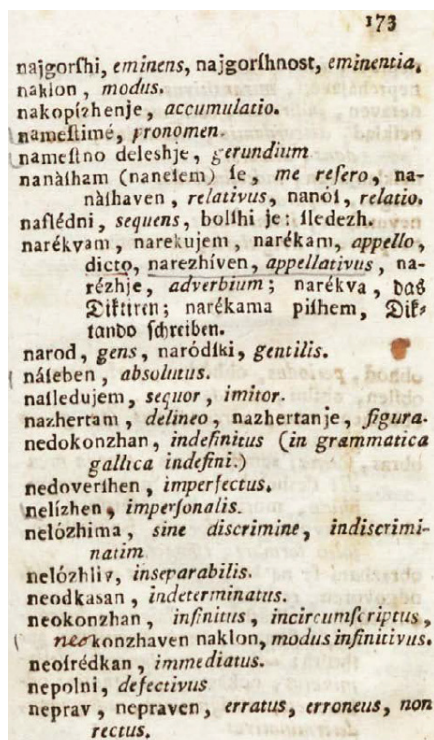 173
najgorſhi, eminens, najgorſhnost, eminentia,
naklon, modus.
nakopízhenje, accumulatio.
nameſtimé, pronomen.
nameſtno deleshje, gerundium
nanàſham (naneſem) ſe, me refero, na-
nàſhaven, relativus, nanóſ, relatio.
naſlédni, sequens, bolſhi je: ſledezh.
narékvam, narekujem, narékam, appello,
dicto, narezhíven, appellativus, na-
rézhje, adverbium; narékva, das
Diktiren; narékama piſhem, Dik-
tando ſchreiben.
narod, gens, naródſki, gentilis.
náſeben, absolutus.
naſledujem, sequor, imitor.
nazhertam, delineo, nazhertanje, figura.
nedokonzhan, indefinitus (in grammatica
gallica indefini.)
nedoverſhen, imperfectus.
nelízhen, imperſonalis.
nelózhima, sine discrimine, indiscrimi-
natim
nelózhliv, inseparabilis.
neodkasan, indeterminatus.
neokonzhan, infinitus, incircumſcriptus,
neokonzhaven naklon, modus infinitivus.
neoſrédkan, immediatus.
nepolni, defectivus
neprav, nepraven, erratus, erroneus, non
rectus.